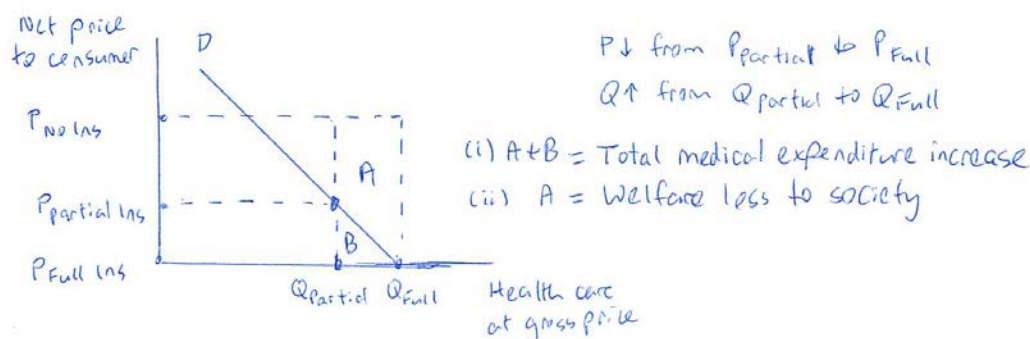 Net price
to consumer
D
P No Ins
P partial Ins
P Full Ins
A
B
Q Partial Q Full
Health care
at gross price
P↓ from P partial to P Full
Q↑ from Q partial to Q Full
(i) A+B = Total medical expenditure increase
(ii) A = Welfare loss to society